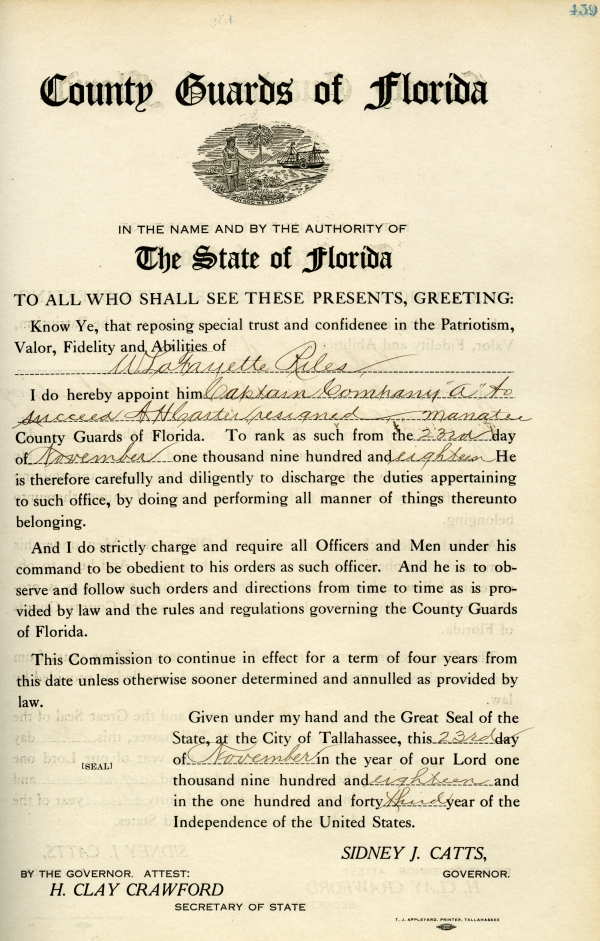 459
County Guards of Florida
IN GOD WE TRUST
IN THE NAME AND BY THE AUTHORITY OF
The State of Florida
TO ALL WHO SHALL SEE THESE PRESENTS, GREETING:
Know Ye, that reposing special trust and confidence in the Patriotism,
Valor, Fidelity and Abilities of
W LaFayette Riles
I do hereby appoint him Captain Company "A" to
succeed A H Carter resigned Manatee
County Guards of Florida. To rank as such from the 23rd day
of November one thousand nine hundred and eighteen He
is therefore carefully and diligently to discharge the duties appertaining
to such office, by doing and performing all manner of things thereunto
belonging.
And I do strictly charge and require all Officers and Men under his
command to be obedient to his orders as such officer. And he is to ob-
serve and follow such orders and directions from time to time as is pro-
vided by law and the rules and regulations governing the County Guards
of Florida.
This Commission to continue in effect for a term of four years from
this date unless otherwise sooner determined and annulled as provided by
law.
Given under my hand and the Great Seal of the
State, at the City of Tallahassee, this 23rd day
of November in the year of our Lord one
[SEAL]
thousand nine hundred and eighteen and
in the one hundred and forty third year of the
Independence of the United States.
SIDNEY J. CATTS,
BY THE GOVERNOR. ATTEST: GOVERNOR.
H. CLAY CRAWFORD
SECRETARY OF STATE
T. J. APPLEYARD, PRINTER, TALLAHASSEE